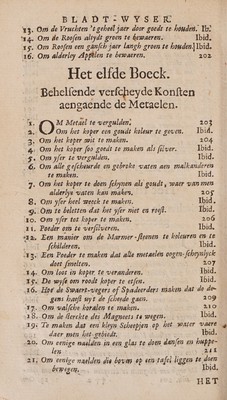 BLADT-WYSER.
13. Om de Vruchten 't geheel jaer door goedt te houden. Ib.
14. Om de Roosen altydt groen te bewaeren. Ibid.
15. Om Roosen een gansch jaer langh groen te houden. Ibid.
16. Om alderley Appelen te bewaeren. 202
Het elfde Boeck.
Behelsende verscheyde Konsten
aengaende de Metaelen.
1. OM Metael te vergulden. 203
2. Om het koper een goudt koleur te geven. Ibid.
3. Om het koper wit te maken. 204
4. Om het koper soo goedt te maken als silver. Ibid.
5. Om yser te vergulden. Ibid.
6. Om alle gescheurde en gebroke vaten aen malkanderen
te maken. Ibid.
7. Om het koper te doen schynen als goudt, waer van men
alderlyn vaten kan maken. 205
8. Om yser heel weeck te maken. Ibid.
9. Om te beletten dat het yser niet en roest. Ibid.
10. Om yser tot koper te maken. 206
11. Poeder om te versilveren. Ibid.
12. Een manier om de Marmer-steenen te koleuren en te
schilderen. Ibid.
13. Een Poeder te maken dat alle metaelen oogen-schynlyck
doet smelten. 207
14. Om loot in koper te veranderen. Ibid.
15. De wyse om roodt koper te etsen. Ibid.
16. Hoe de Swaert-vegers of Spadeerders maken dat de de-
gens haest uyt de scheede gaen. 209
17. Om valsche koralen te maken. 210
18. Om de sterckte des Magneets te wegen. Ibid.
19. Te maken dat een kleyn Scheepjen op het water vaere
daer men het gebiedt. Ibid.
20. Om eenige naelden in een glas te doen dansen en huppe-
len 211
21. Om eenige naelden die boven op een tafel liggen te doen
bewegen. Ibid.
HET